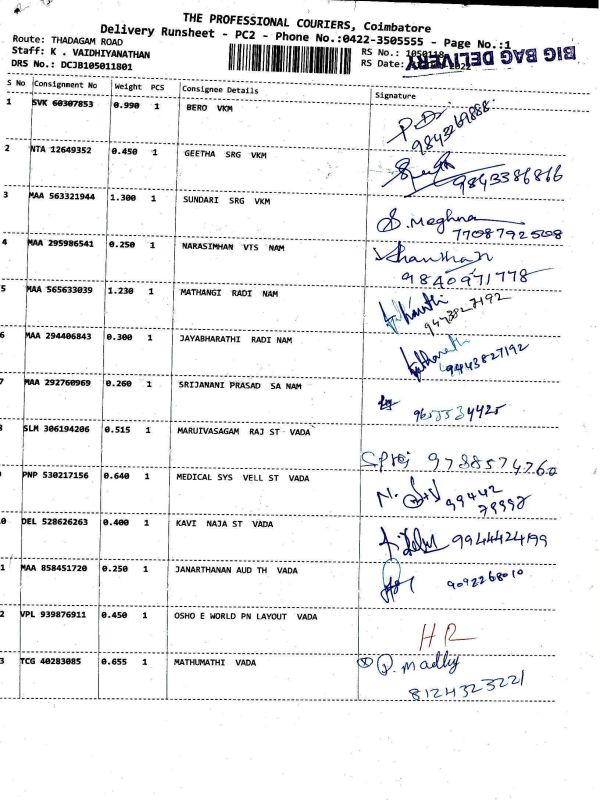 THE PROFESSIONAL COURIERS, Coimbatore
Delivery Runsheet - PC2 - Phone No.:0422-3505555 - Page No.:1
Route: THADAGAM ROAD
Staff: K . VAIDHIYANATHAN
DRS No.: DCJB105011801
RS No.: 1050118
RS Date:
BIG BAG DELIVERY
S No Consignment No Weight PCS Consignee Details Signature
1 SVK 60307853 0.990 1 BERO VKM
9843269888
2 NTA 12649352 0.450 1 GEETHA SRG VKM
9843386866
3 MAA 563321944 1.300 1 SUNDARI SRG VKM
S. Meghna
7708792508
4 MAA 295986541 0.250 1 NARASIMHAN VTS NAM
9840971778
5 MAA 565633039 1.230 1 MATHANGI RADI NAM
9443827192
6 MAA 294406843 0.300 1 JAYABHARATHI RADI NAM
9443827192
7 MAA 292760969 0.260 1 SRIJANANI PRASAD SA NAM
9655534425
8 SLM 306194206 0.515 1 MARUIVASAGAM RAJ ST VADA
9788574760
9 PNP 530217156 0.640 1 MEDICAL SYS VELL ST VADA
99442
79998
0 DEL 528626263 0.400 1 KAVI NAJA ST VADA
9944424199
1 MAA 858451720 0.250 1 JANARTHANAN AUD TH VADA
9092268010
2 VPL 939876911 0.450 1 OSHO E WORLD PN LAYOUT VADA
HR
3 TCG 40283085 0.655 1 MATHUMATHI VADA
8124323221